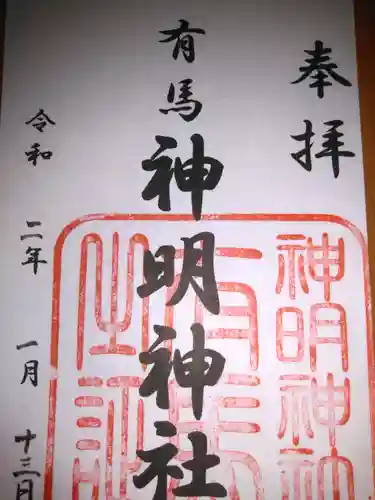 奉拝
有馬神明神社
令和二年一月十三日
神明神
有馬
之印